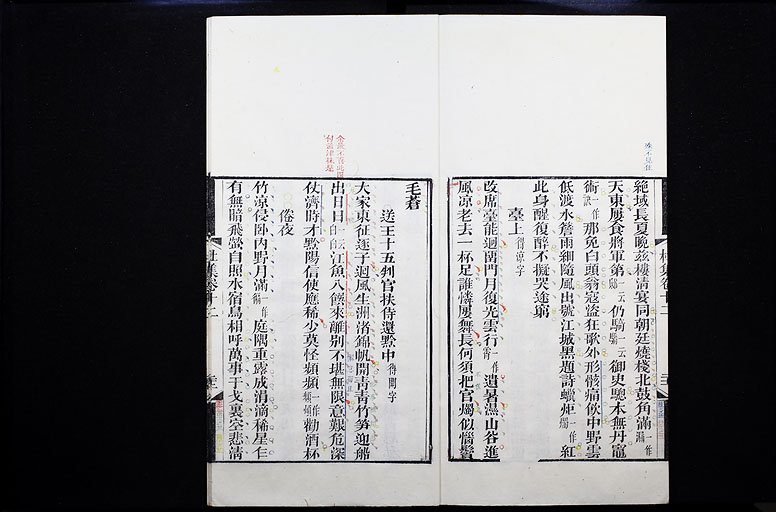 絶域長夏晚茲樓清宴同朝廷燒棧北鼓角滿一作漏
天東屢食將軍第一云仍騎一云御史驄本無丹竈
術一作訣那免白頭翁寇盜狂歌外形骸痛飲中野雲
低渡水簷雨細隨風出號江城黑題詩蠟炬一作燭紅
此身醒復醉不擬哭途窮
臺上得涼字
改席臺能迥留門月復光雲行一作霄遺暑濕山谷進
風涼老去一杯足誰憐屢舞長何須把官燭似惱鬢
毛蒼
送王十五判官扶侍還黔中得開字
大家東征逐子迴風生洲渚錦帆開青青竹笋迎船
出日日江魚入饌來離別不堪無限意艱危深
仗濟時才黔陽信使應稀少莫怪頻頻一作頻煩勸酒杯
倦夜
竹涼侵臥內野月滿一作漏庭隅重露成涓滴稀星乍
有無暗飛螢自照水宿鳥相呼萬事干戈裏空悲清
杜集卷十二